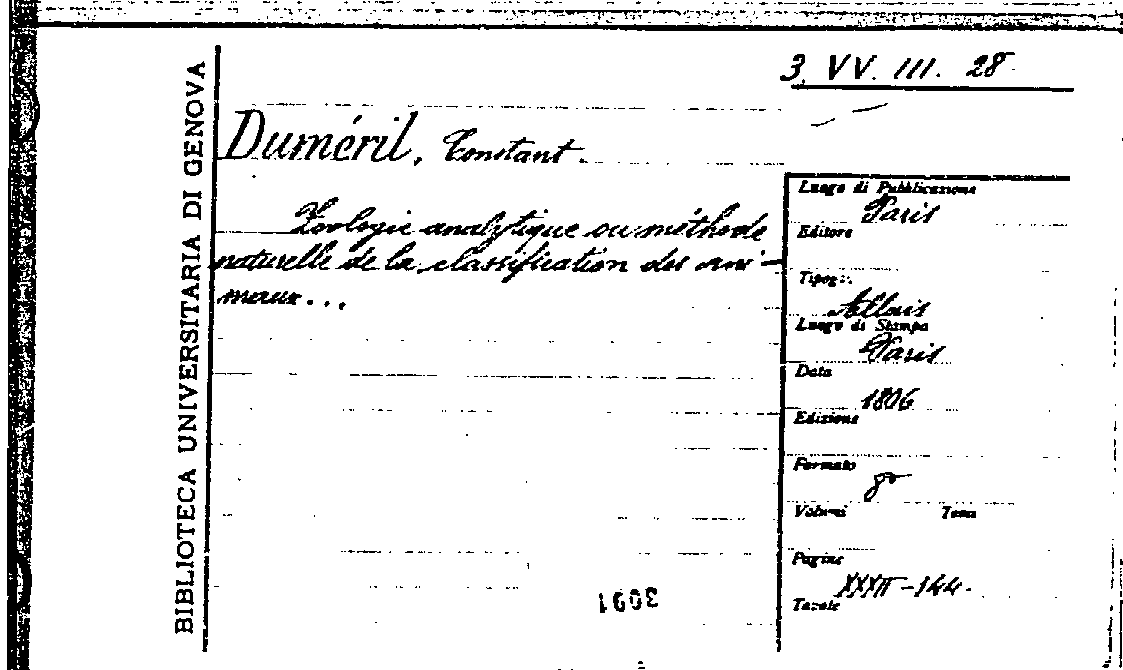 3. VV. III. 28
BIBLIOTECA UNIVERSITARIA DI GENOVA
Duméril, Constant.
Zoologie analytique ou méthode
naturelle de la classification des ani-
maux...
Luogo di Pubblicazione
Paris
Editore
Tipogr.
Allais
Luogo di Stampa
Paris
Data
1806
Edizione
Formato
8°
Volumi Tomi
Pagine
XXXII-344.
Tavole
3091